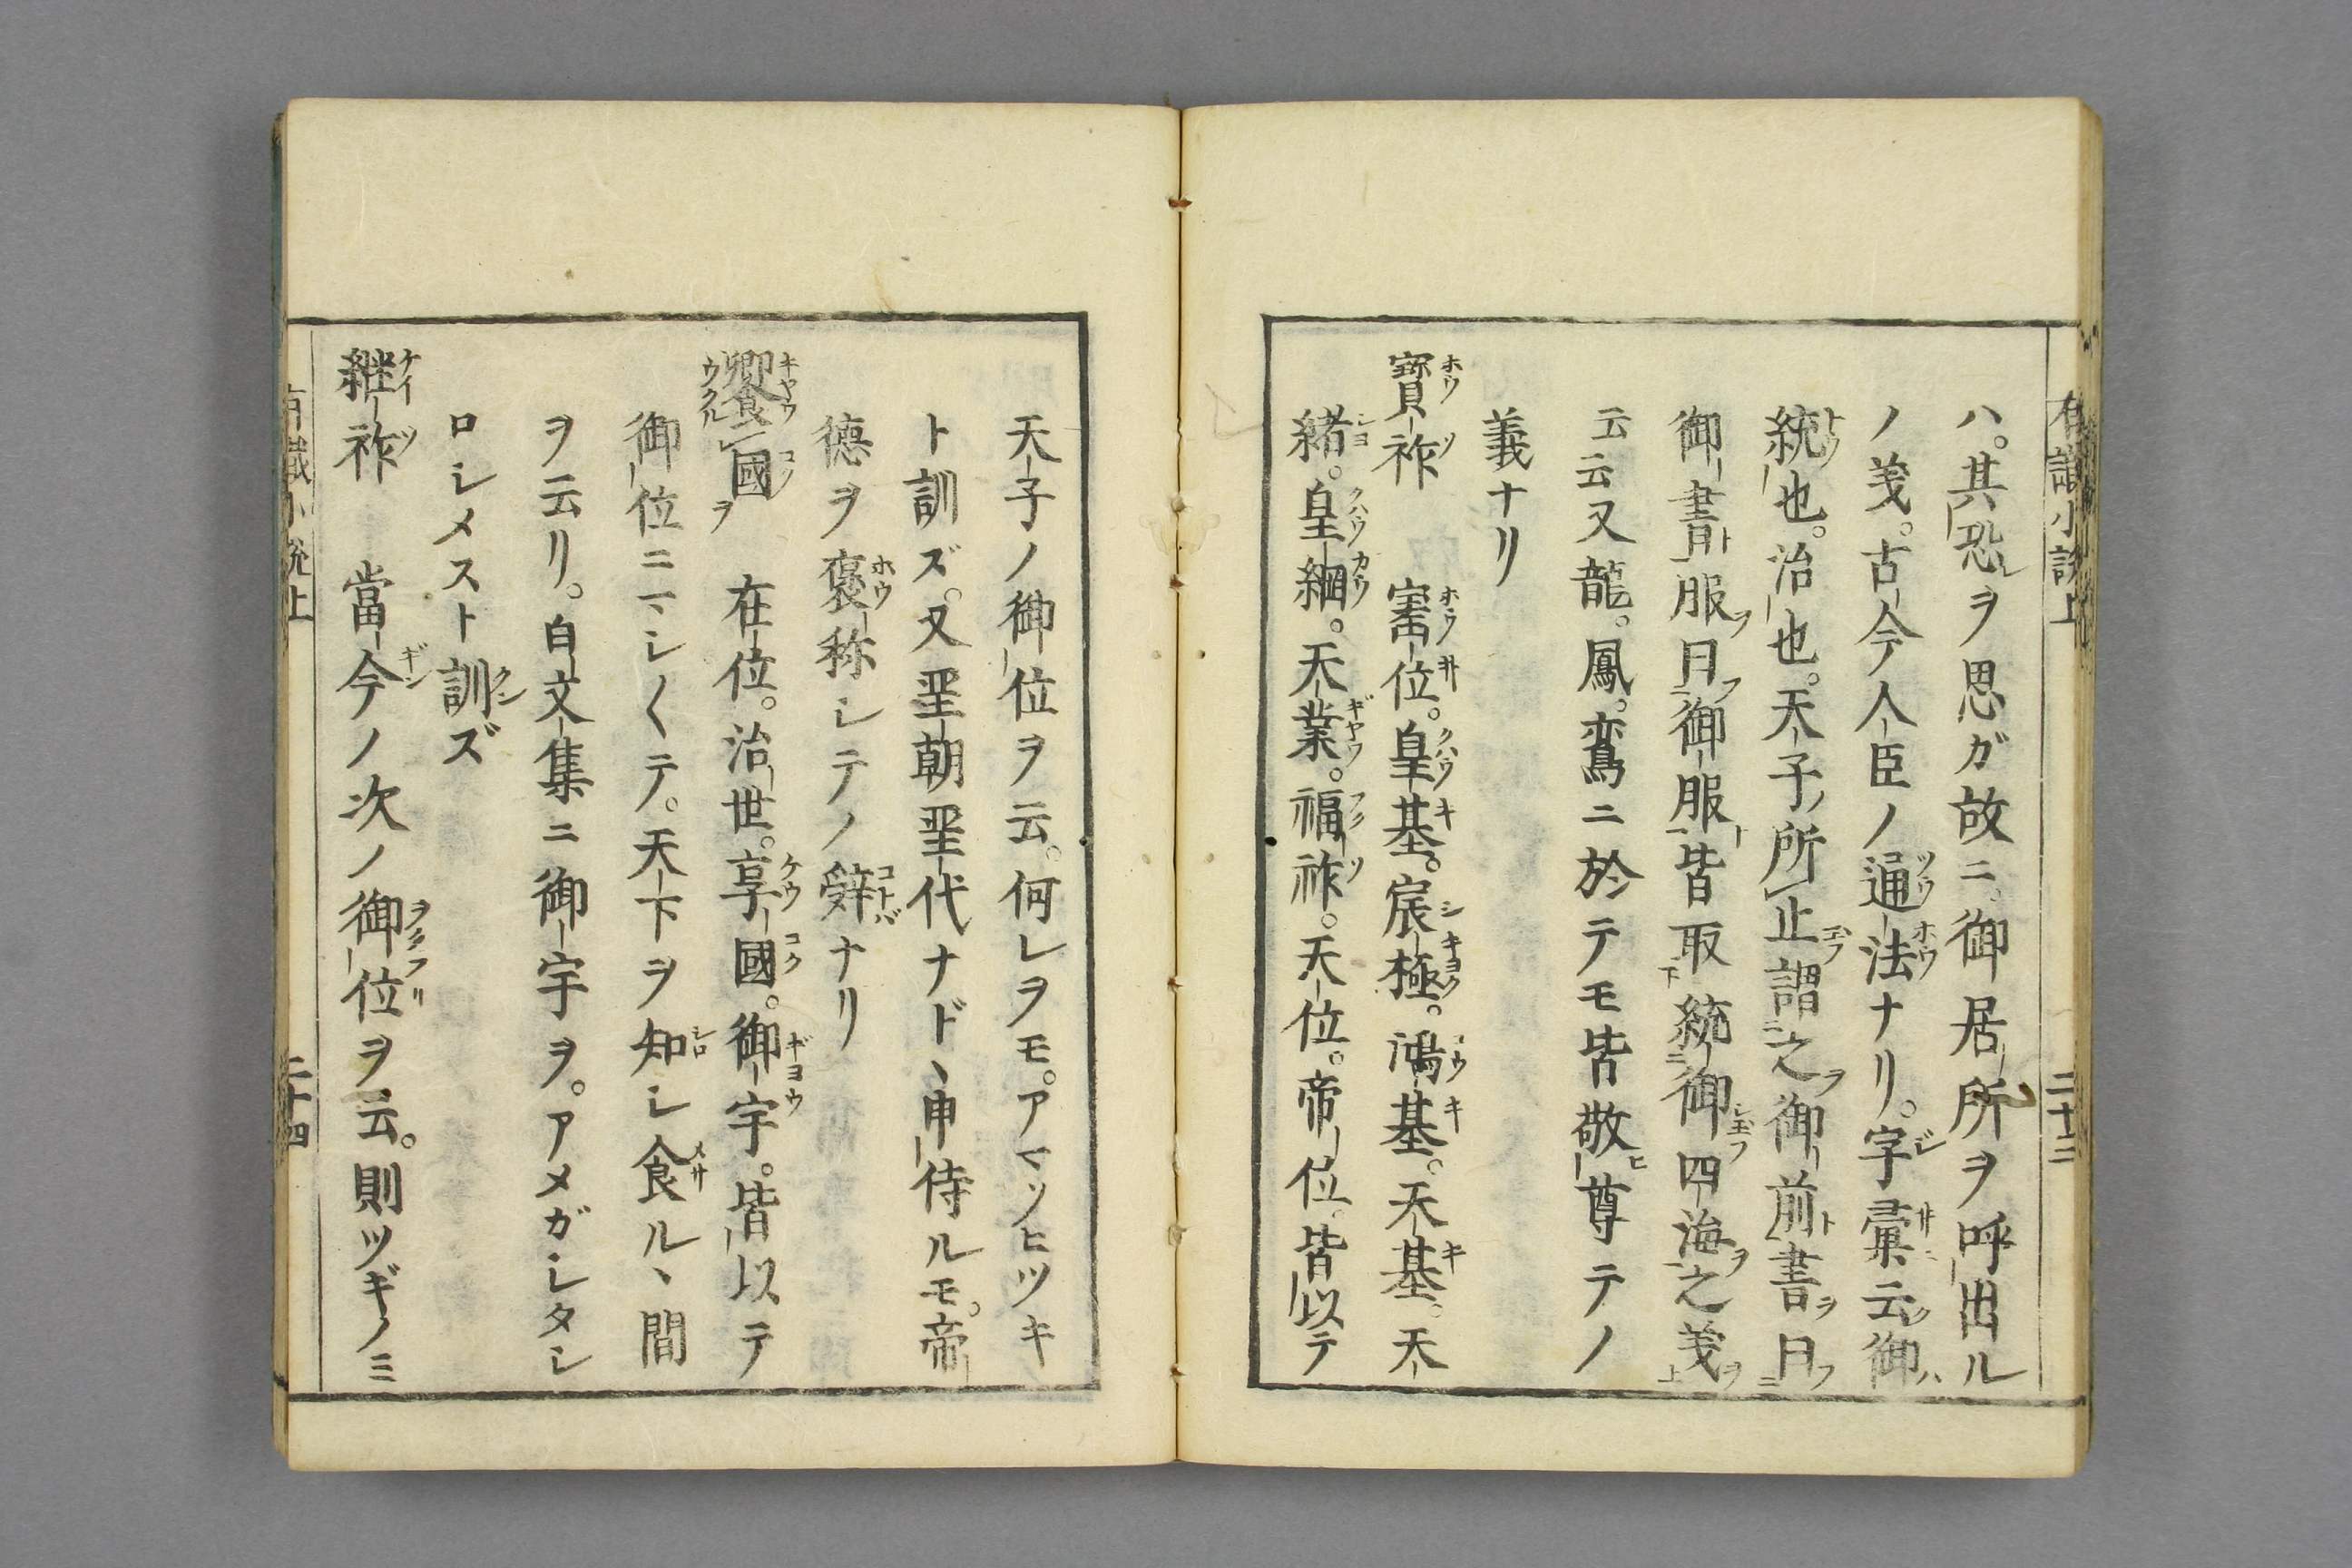 有識小説上 二十三
ハ。其恐レヲ思ガ故ニ。御居所ヲ呼出ル
ノ義。古今人臣ノ通法ナリ。字彙云御ハ
統也。治也。天子ノ所止謂之御前書曰
御書服曰御服皆取統御四海之義
云云又龍。鳳。鸞ニ於テモ皆敬ヒ尊テノ
義ナリ
寳祚 寚位。皇基。宸極。鴻基。天基。天
緒。皇綱。天業。福祚。天位。帝位。皆以テ
天子ノ御位ヲ云。何レヲモ。アマツヒツキ
ト訓ズ。又聖朝聖代ナド、申侍ルモ。帝
德ヲ褒称シテノ辤ナリ
饗國ヲ 在位。治世。享國。御宇。皆以テ
御位ニマシ〱テ。天下ヲ知シ食ル、間
ヲ云リ。白文集ニ御宇ヲ。アメガシタシ
ロシメスト訓ズ
継祚 當今ノ次ノ御位ヲ云。則ツギノミ
有職小説上 二十四